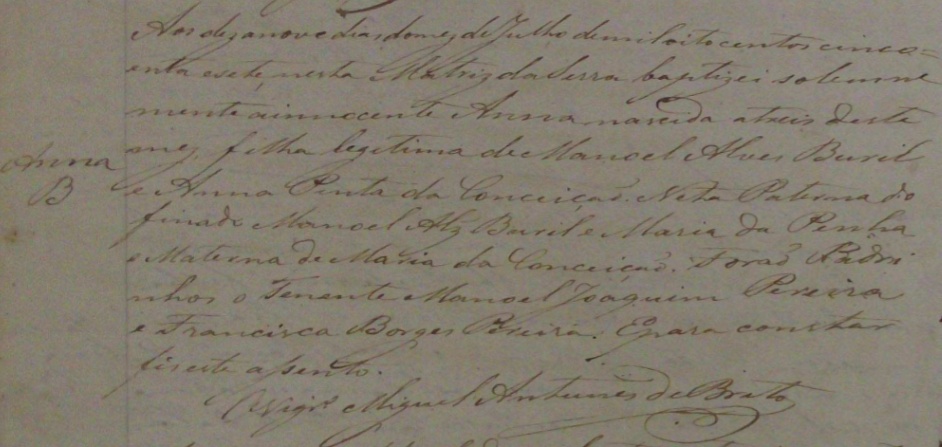 Aos dezanove dias do mez de Julho de mil oitocentos cinco=
enta e sete, nesta Matriz da Serra baptizei solemne
mente a innocente Anna nascida a treis deste
mez, filha legitima de Manoel Alves Buril
Anna
B
e Anna Pinta da Conceição. Neta Paterna do
finado Manoel Alz Buril e Maria da Penha
e Materna de Maria da Conceição. Forão Padri
nhos o Tenente Manoel Joaquim Pereira
e Francisca Borges Pereira. E para constar
fis este assento.
Vigrº Miguel Antunes de Brito